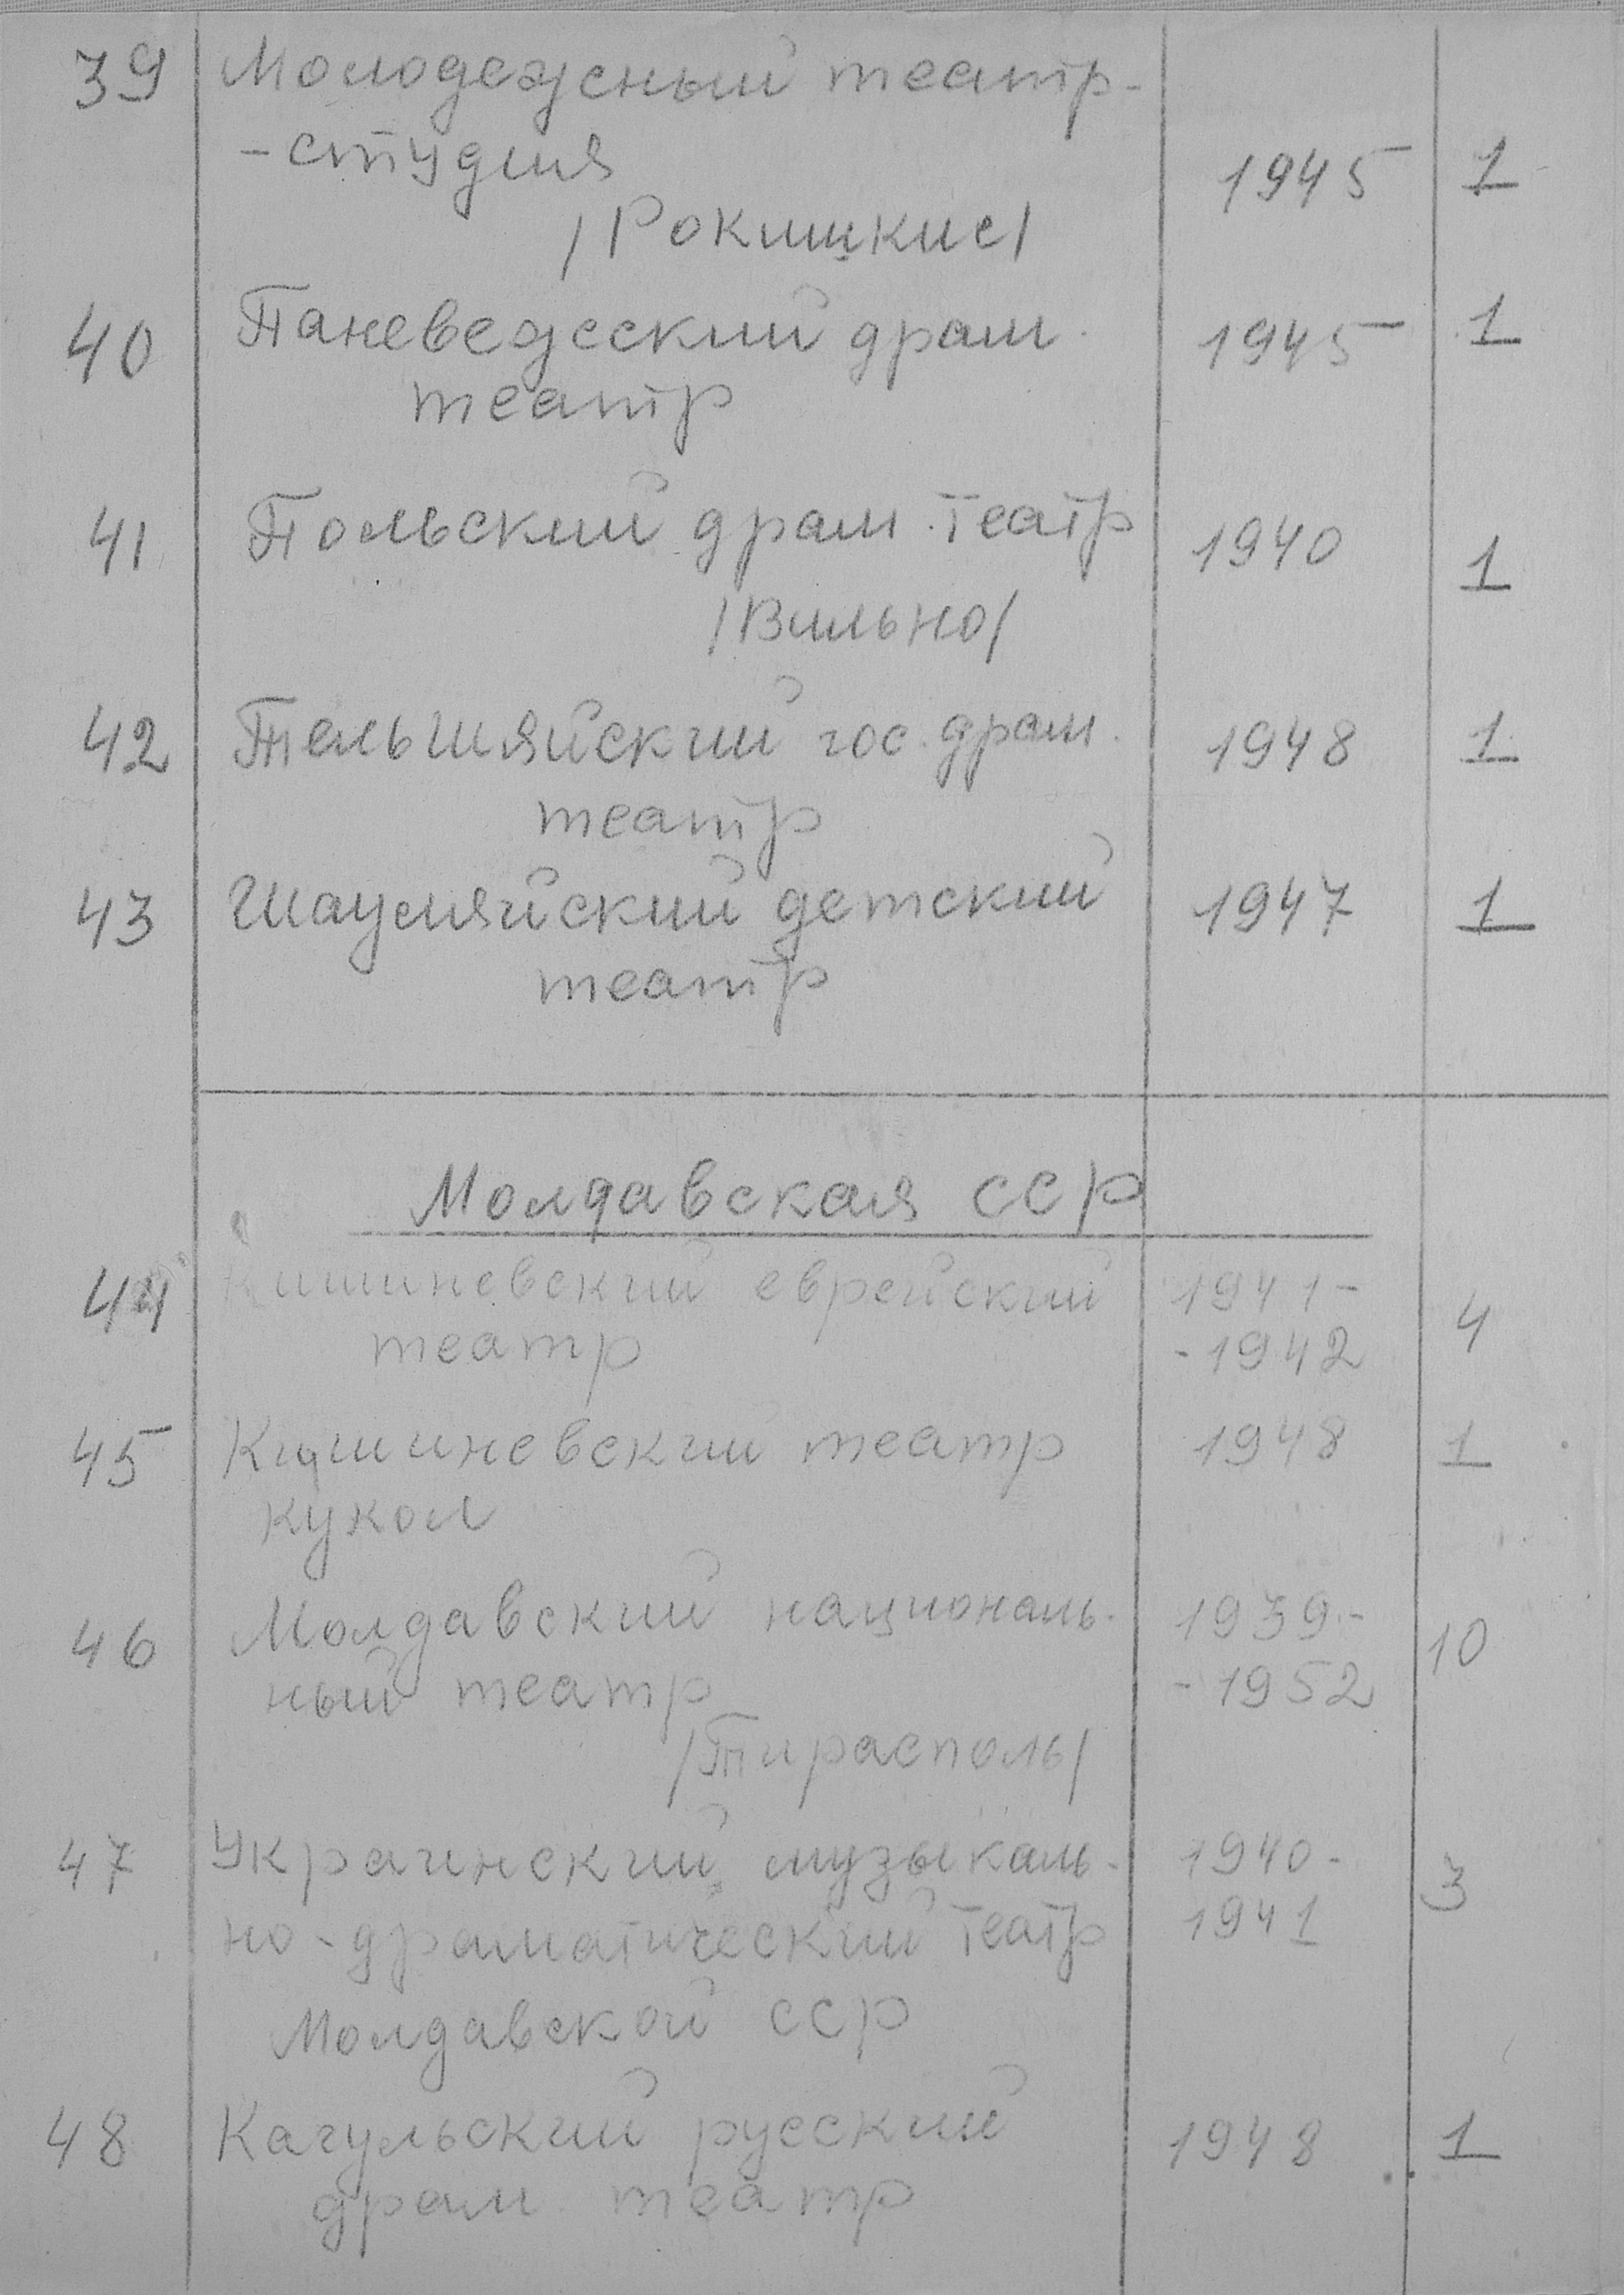 39 Молодежный театр-
-студия 1945 1
/Рокишкис/
40 Паневежеский драм. 1945 1
театр
41 Польский драм. театр 1940 1
/Вильно/
42 Тельшяйский гос. драм. 1948 1
театр
43 Шауляйский детский 1947 1
театр
Молдавская ССР
44 Кишиневский еврейский 1941-
театр -1942 4
45 Кишиневский театр 1948 1
кукол
46 Молдавский националь- 1939-
ный театр -1952 10
/Тирасполь/
47 Украинский музыкаль- 1940-
но-драматический театр 1941 3
Молдавской ССР
48 Кагульский русский 1948 1
драм. театр